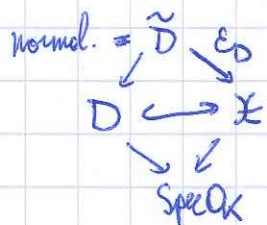 normal. = D̃ ε_D
D 𝒳
Spec O_K